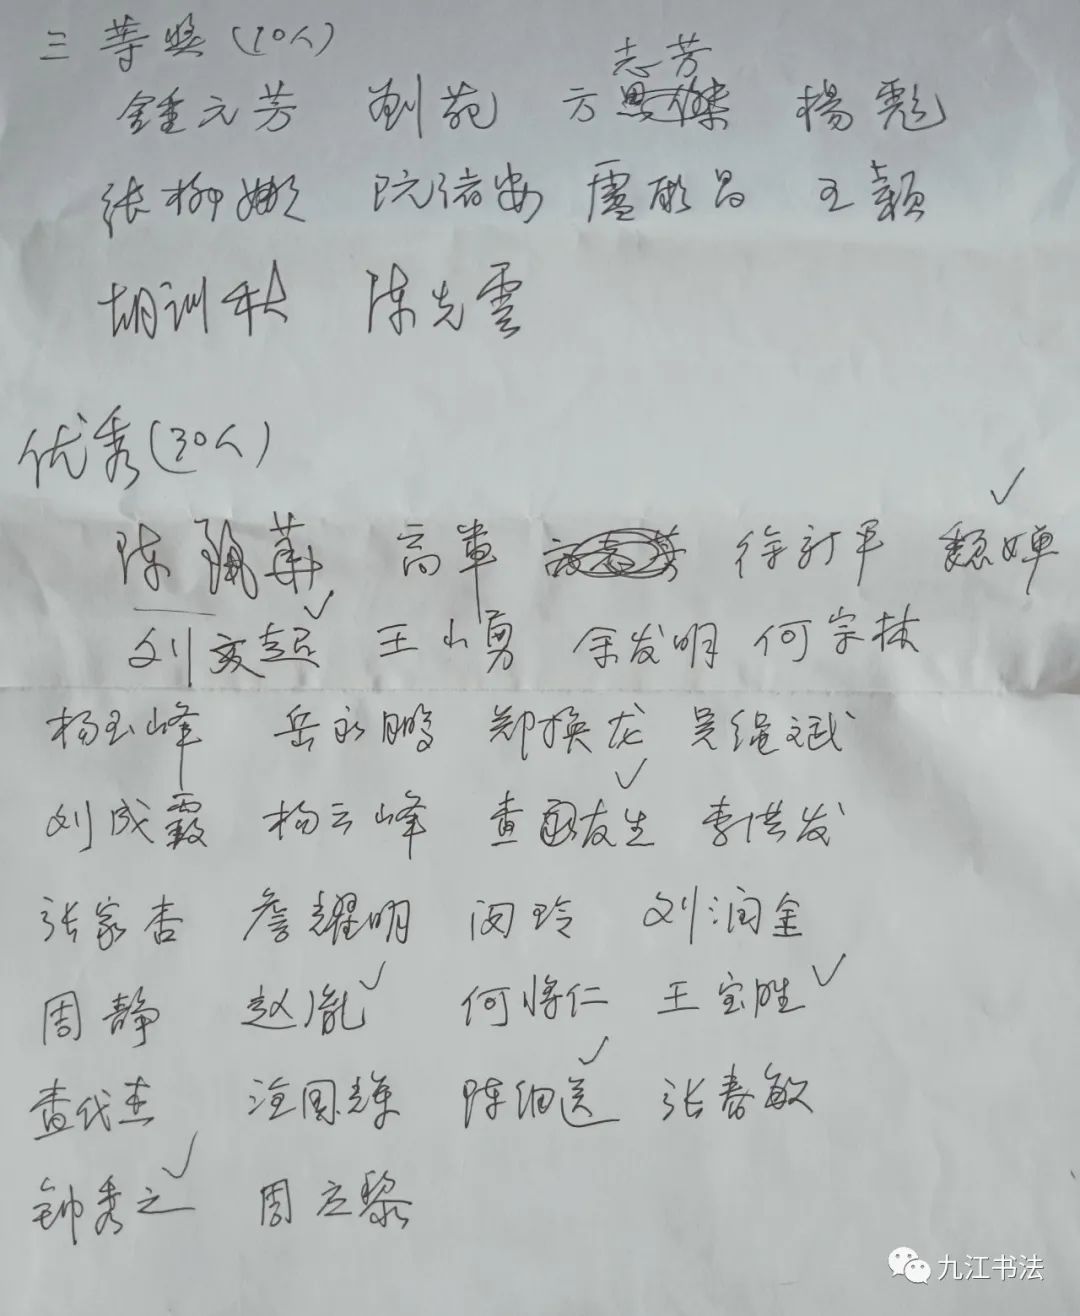 三等奖(10人)
志芳
鍾元芳 劉苑 方 楊彪
张柳娜 阮诸安 盧彬昌 王穎
胡训秋 陈先雲
优秀(30人)
陈珮華 高軍 徐新平 魏婵
刘文超 王小勇 余发明 何宗林
杨玉峰 岳永鹏 郑换龙 吴绳斌
刘成霞 杨云峰 查友生 李洪发
张家杏 詹耀明 闵玲 刘润金
周静 赵胤 何将仁 王宝胜
查代杰 汪国辉 陈细送 张春敏
钟秀之 周立黎
九江书法